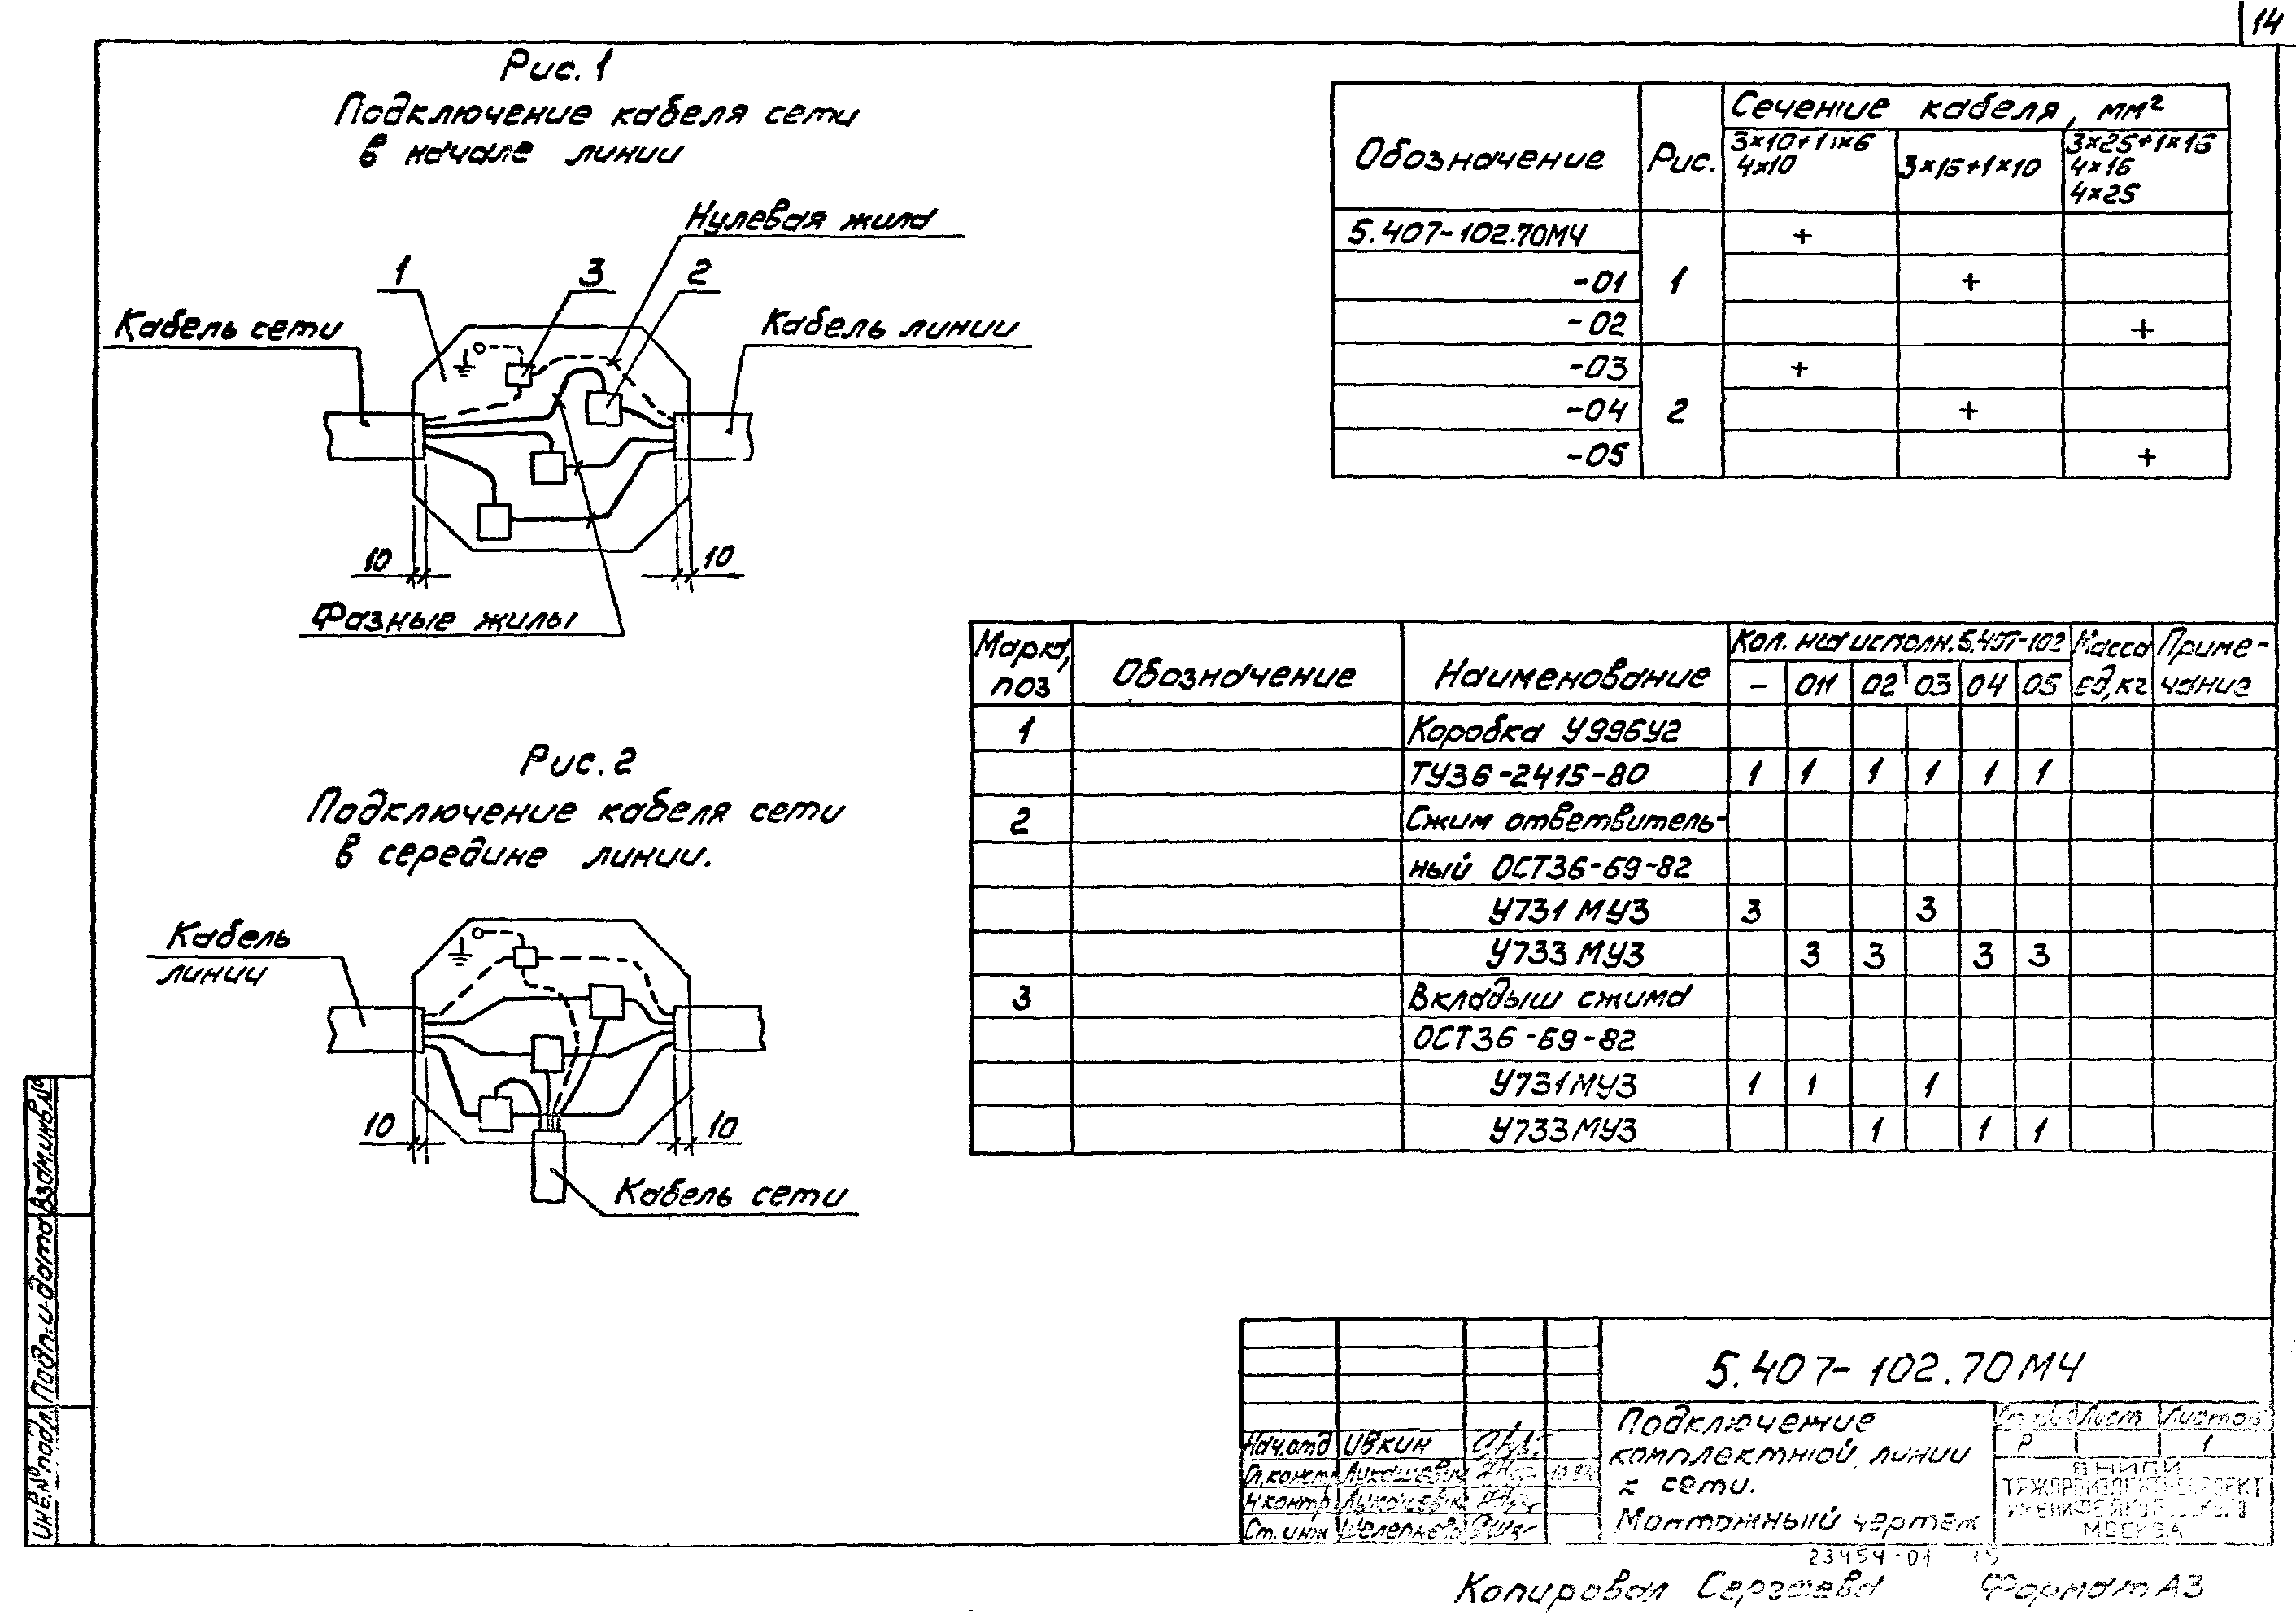 14
Рис. 1
Подключение кабеля сети
в начале линии
Нулевая жила
1
3
2
Кабель сети
Кабель линии
10
10
Фазные жилы
Рис. 2
Подключение кабеля сети
в середине линии.
Кабель
линии
10
10
Кабель сети
Обозначение Рис. Сечение кабеля, мм²
3×10+1×6
4×10
3×16+1×10
3×25+1×16
4×16
4×25
5.407-102.70МЧ +
-01 1 +
-02 +
-03 +
-04 2 +
-05 +
Марка, поз Обозначение Наименование Кол. на исполн. 5.407-102 Масса ед, кг Приме-чание
- 01 02 03 04 05
1 Коробка У996У2
ТУ36-2415-80 1 1 1 1 1 1
2 Сжим ответвитель-
ный ОСТ36-69-82
У731 МУ3 3 3
У733 МУ3 3 3 3 3
3 Вкладыш сжима
ОСТ36-69-82
У731МУ3 1 1 1
У733МУ3 1 1 1
5.407-102.70МЧ
Подключение
комплектной линии
к сети.
Монтажный чертеж
Лист Листов
Р 1
ВНИПИ
ТЯЖПРОМЭЛЕКТРОПРОЕКТ
МОСКВА
Нач.отд Ивкин
Гл.констр Лукашевич
Н контр Лукашевич
Ст. инж
23454-01 15
Копировал Сергеева Формат А3
Взам.инв.№
Подп. и дата
Инв.№ подл.